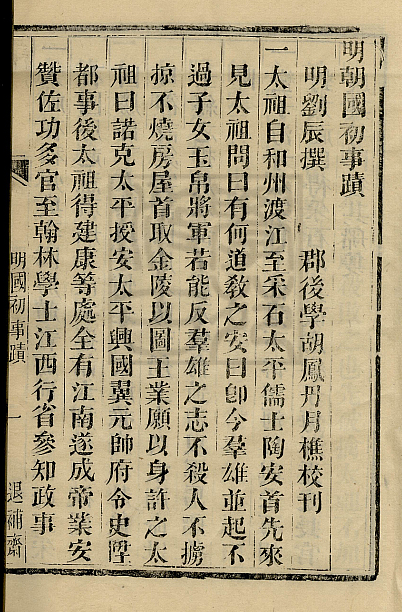 明朝國初事蹟
明劉辰撰　郡後學胡鳳丹月樵校刊
一太祖自和州渡江至采石太平儒士陶安首先來
見太祖問曰有何道敎之安曰卽今羣雄並起不
過子女玉帛將軍若能反羣雄之志不殺人不擄
掠不燒房屋首取金陵以圖王業願以身許之太
祖曰諾克太平授安太平興國翼元帥府令史陞
都事後太祖得建康等處全有江南遂成帝業安
贊佐功多官至翰林學士江西行省參知政事
明國初事蹟　一　退補齋